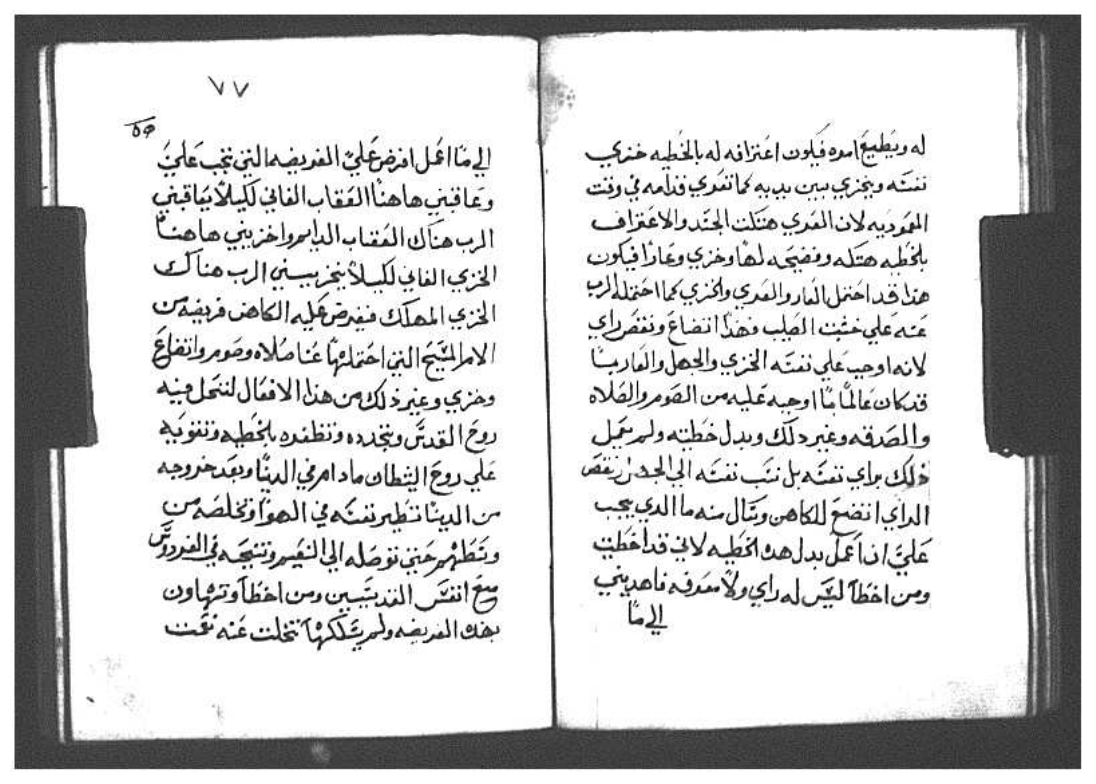 له ويطيع امره فيكون اعترافه له بالخطيه خزي
نفسه ويخزي بين يديه كما تعري قدامه في وقت
المعموديه لان العري هتكت الجسد والاعتراف
بالخطيه هتكه وفضيحه لها وخزي وعارًا فيكون
هذا قد احتمل العار والعري والخزي كما احتمله الرب
عنه علي خشبت الصليب فهذا اتضاع ونقص راي
لانه اوجب علي نفسه الخزي والجهل والعار
قد كان عالمًا ما اوجبه عليه من الصوم والصلاه
والصدقه وغير دلك وبدل خطيته ولم يعمل
ذلك براي نفسه بل نسب نفسه الي الجهل ونقص
الراي اتضع للكاهن وسال منه ما الدي يجب
عليَّ ان اعمل بدل هده الخطيه لاني قد اخطيت
ومن اخطا ليس له راي ولا معرفه فاهديني
الي ما
٧٧
الي ما اعمل افرض عليّ الفريضه التي تجب عليَّ
وعاقبني هاهنا العقاب الفاني لكيلا يعاقبني
الرب هناك العقاب الدايم واخزيني هاهنا
الخزي الفاني لكيلا يخزيني الرب هناك
الخزي المهلك فيفرض عليه الكاهن فريضه من
الامر المسيح التي احتملها عنا صلاه وصوم واتضاع
وخزي وغير ذلك من هذا الافعال لتحل فيه
روح القدس وتجدده وتطهره بالخطيه وتقويه
علي روح الشطان مادام في الدنيا وبعد خروجه
من الدنيا تطير نفسه في الهوا وتخلصه من
وتطهرهم حتي توصله الي النعيم وتنيحه في الفردوس
مع انفس القديسين ومن اخطا وتهاون
بهذه الفريضه ولم يسلكها تخلت عنه نعمت